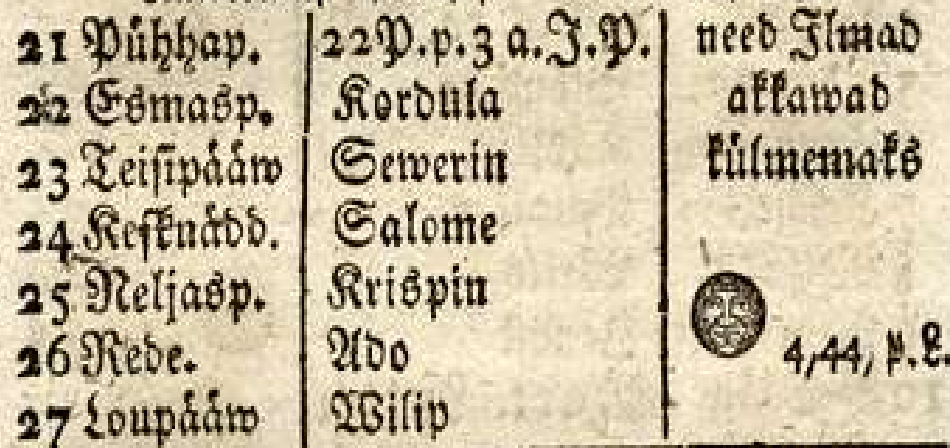 21 Pühhap. 22 P. p. 3 a. J. P. need Ilmad
22 Esmasp. Kordula akkawad
23 Teisipääw Sewerin külmemaks
24 Kesknädd. Salome
25 Neljasp. Krispin
26 Rede. Ado 4, 44, p. L.
27 Loupääw Wilip